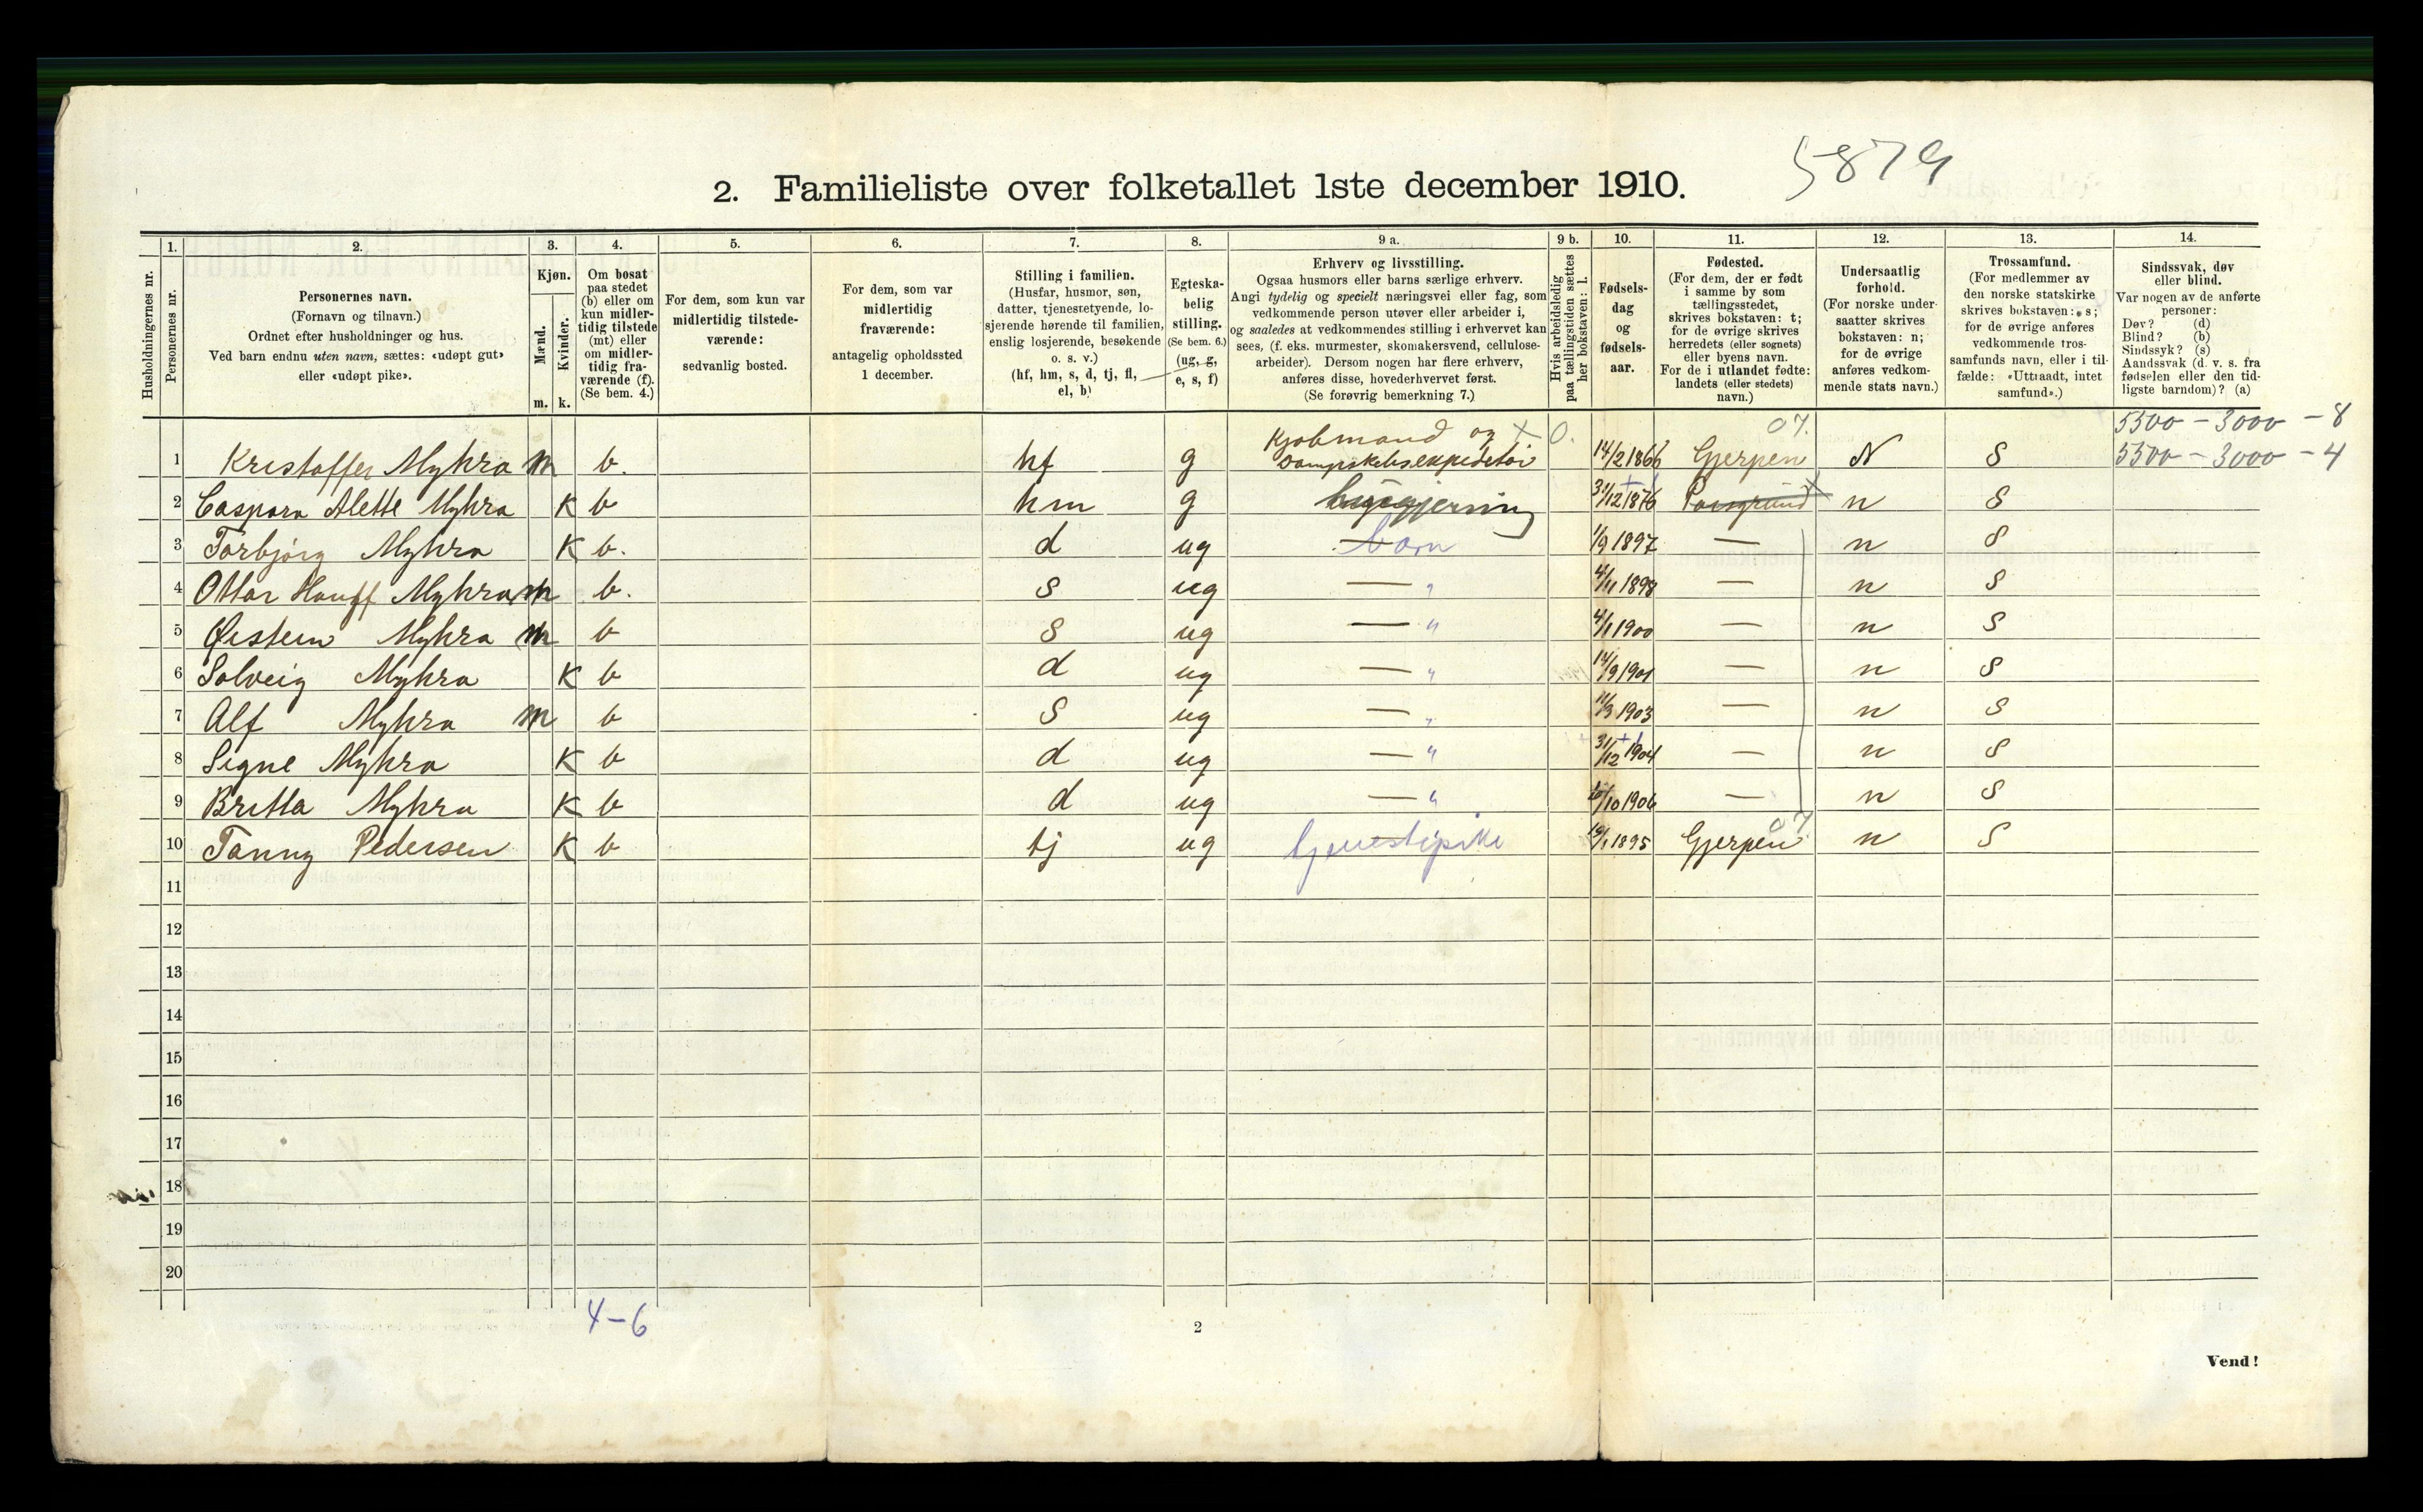 5879
2. Familieliste over folketallet 1ste december 1910.
Husholdningernes nr.
1. Personernes nr.
2. Personernes navn.
(Fornavn og tilnavn.)
Ordnet efter husholdninger og hus.
Ved barn endnu uten navn, sættes: «udøpt gut»
eller «udøpt pike».
3. Kjøn.
Mænd. m.
Kvinder. k.
4. Om bosat
paa stedet
(b) eller om
kun midler-
tidig tilstede
(mt) eller
om midler-
tidig fra-
værende (f).
(Se bem. 4.)
5. For dem, som kun var
midlertidig tilstede-
værende:
sedvanlig bosted.
6. For dem, som var
midlertidig
fraværende:
antagelig opholdssted
1 december.
7. Stilling i familien.
(Husfar, husmor, søn,
datter, tjenestetyende, lo-
sjerende hørende til familien,
enslig losjerende, besøkende
o. s. v.)
(hf, hm, s, d, tj, fl,
el, b)
8. Egteska-
belig
stilling.
(Se bem. 6.)
(ug, g,
e, s, f)
9 a. Erhverv og livsstilling.
Ogsaa husmors eller barns særlige erhverv.
Angi tydelig og specielt næringsvei eller fag, som
vedkommende person utøver eller arbeider i,
og saaledes at vedkommendes stilling i erhvervet kan
sees, (f. eks. murmester, skomakersvend, cellulose-
arbeider). Dersom nogen har flere erhverv,
anføres disse, hovederhvervet først.
(Se forøvrig bemerkning 7.)
9 b. Hvis arbeidsledig
paa tællingstiden sættes
her bokstaven: l.
10. Fødsels-
dag
og
fødsels-
aar.
11. Fødested.
(For dem, der er født
i samme by som
tællingsstedet,
skrives bokstaven: t;
for de øvrige skrives
herredets (eller sognets)
eller byens navn.
For de i utlandet fødte:
landets (eller stedets)
navn.)
12. Undersaatlig
forhold.
(For norske under-
saatter skrives
bokstaven: n;
for de øvrige
anføres vedkom-
mende stats navn.)
13. Trossamfund.
(For medlemmer av
den norske statskirke
skrives bokstaven: s;
for de øvrige anføres
vedkommende tros-
samfunds navn, eller i til-
fælde: «Uttraadt, intet
samfund».)
14. Sindssvak, døv
eller blind.
Var nogen av de anførte
personer:
Døv? (d)
Blind? (b)
Sindssyk? (s)
Aandssvak (d. v. s. fra
fødselen eller den tid-
ligste barndom)? (a)
Kjøbmand og x 0. 07. 5500 - 3000 - 8
1 Kristoffer Myhra m b. hf g Dampskibsexpeditør 14/2 1866 Gjerpen N S 5500 - 3000 - 4
2 Caspara Alette Myhra K b hm g husgjerning 31/12 1876 Porsgrund n S
3 Torbjörg Myhra K b. d ug barn 1/9 1897 — n S
4 Ottar Hauff Myhra m b. s ug — " 4/11 1898 — n S
5 Øistein Myhra m b S ug — " 4/1 1900 — n S
6 Solveig Myhra K b d ug — " 14/9 1901 — n S
7 Alf Myhra m b S ug — " 11/3 1903 — n S
8 Signe Myhra K b d ug — " 31/12 1904 — n S
9 Britta Myhra K b d ug — " /10 1906 — n S
07
10 Fanny Pedersen K b tj ug tjenestepike /1 1895 Gjerpen n S
11
12
13
14
15
16
17
18
19
20
4-6
2
Vend!